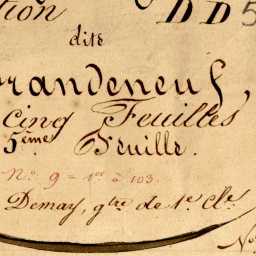 tion D D 5
dite
randeneuf,
cinq Feuilles
5ème Feuille.
N° 9 = 1er à 103.
Demay, gtre de 1e Cle.
No